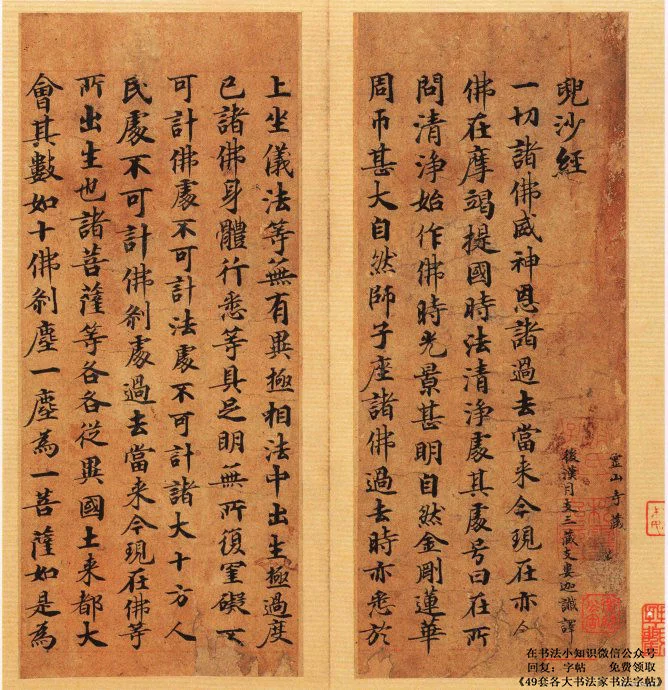 兜沙經
靈山寺藏
後漢月支三藏支婁迦讖譯
一切諸佛威神恩諸過去當来今現在亦尒
佛在摩竭提國時法清淨處其處号曰在所
問清淨始作佛時光景甚明自然金剛蓮華
周帀甚大自然師子座諸佛過去時亦悉於
上坐儀法等無有異極相法中出生極過度
已諸佛身體行悉等具足明無所復罣礙不
可計佛處不可計法處不可計諸大十方人
民處不可計佛剎處過去當来今現在佛等
所出生也諸菩薩等各各從異國土来都大
會其數如十佛剎塵一塵為一菩薩如是為
在书法小知识微信公众号
回复：字帖 免费领取
《49套各大书法家书法字帖》